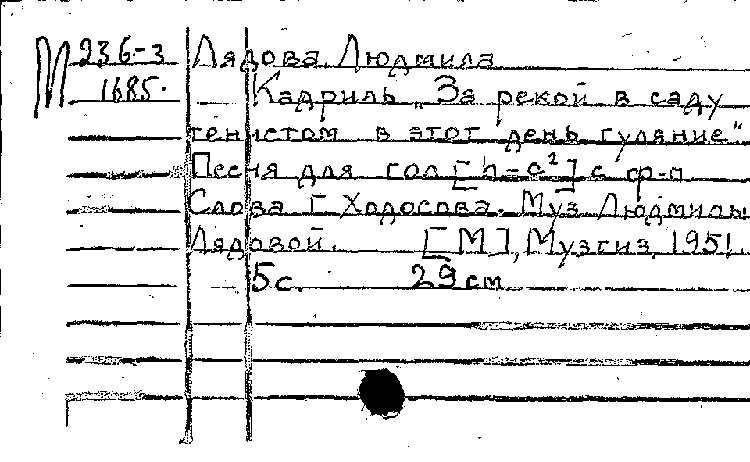 М 236-3 Лядова Людмила
1685. Кадриль „За рекой в саду
тенистом в этот день гуляние"
Песня для гол [h-c²] с ф-п
Слова Г Ходосова. Муз Людмилы
Лядовой. [М], Музгиз, 1951.
5с. 29 см